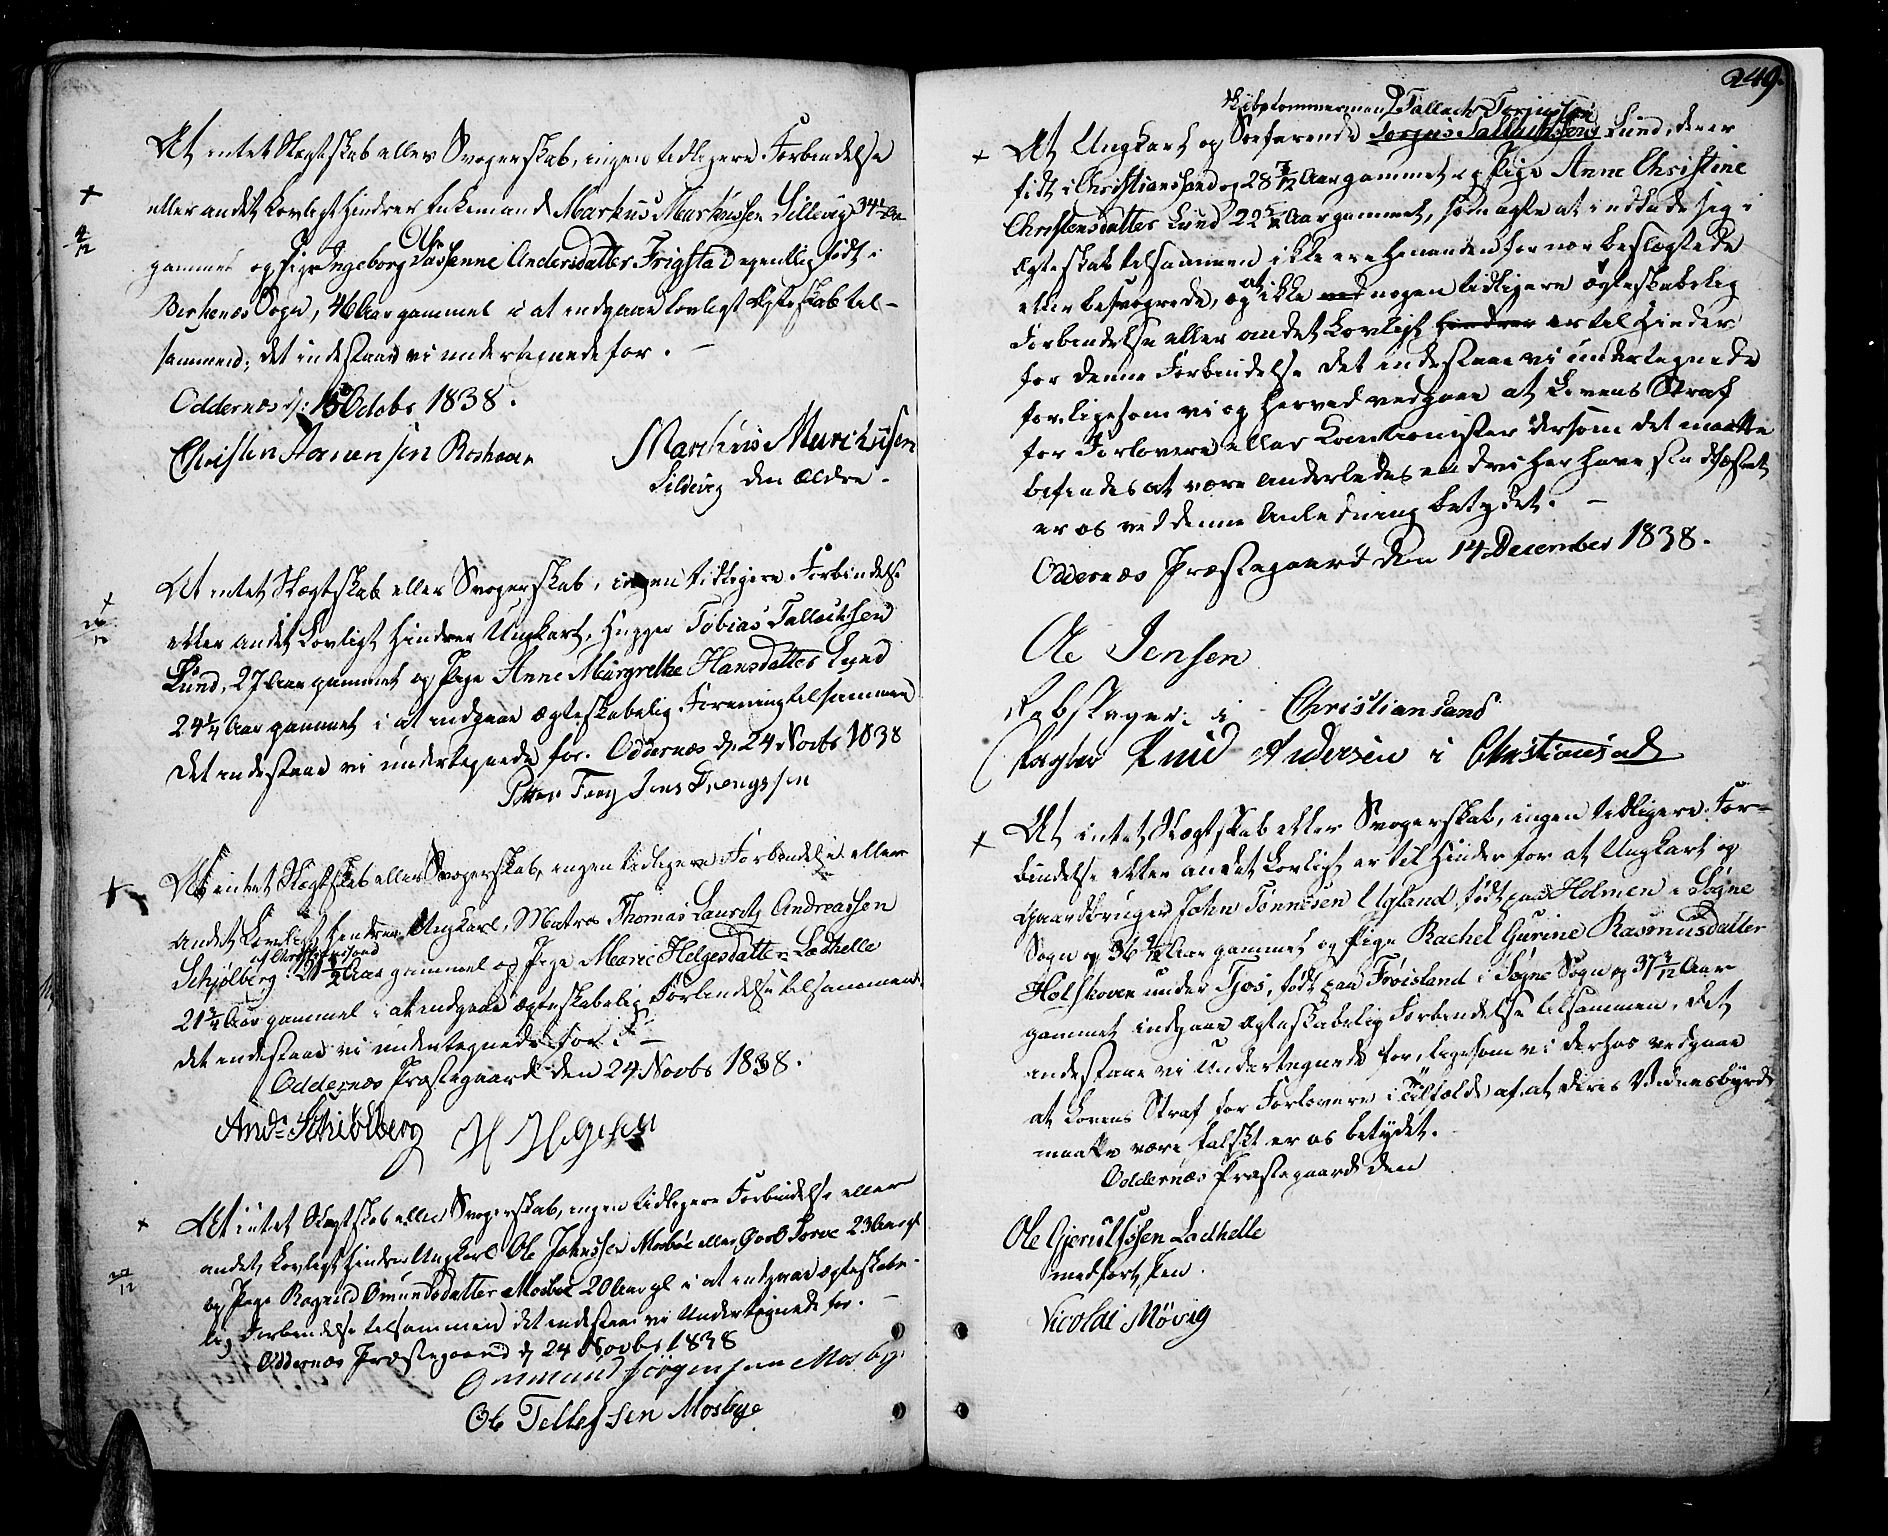 At intet Slægtskab eller Svogerskab, ingen tidligere Forbindelse
eller andet Lovligt hindrer Enkemand Markus Markussen Sillevig 34 1/2 Aar
gammel og Pige Ingeborg Assenne Andersdatter Frigstad egentlig født i
Birkenæs Sogn, 46 Aar gammel i at indgaae lovligt Ægteskab til-
sammen; det indestaae vi undertegnede for. —
Oddernæs d: 15 Octobr 1838.
Christen Roshaven
Marckus Marckusen
Sildevig den Ældre.
+
4/12
At intet Slægtskab eller Svogerskab, ingen tidligere Forbindelse
eller andet Lovligt hindrer Ungkarl, Tobias Tallachsen
Lund, 27 Aar gammel og Pige Anne Margrethe Hansdatter Lund
24 1/4 Aar gammel i at indgaae ægteskabelig Forening tilsammen
det indestaae vi undertegnede for. Oddernæs d. 24 Novbr 1838
Jens
+
At intet Slægtskab eller Svogerskab, ingen tidligere Forbindelse eller
andet Lovligt hindrer Ungkarl, Matros Thomas Lauritz Andreassen
af Christiansand
Schjølberg 21 1/2 Aar gammel og Pige Marie Helgesdatter Ladhelle
21 3/4 Aar gammel i at indgaae ægteskabelig Forbindelse tilsammen
det indestaae vi undertegnede for. —
Oddernæs Præstegaard den 24 Novbr 1838.
And: Schiölberg H Helgesen
+
At intet Slægtskab eller Svogerskab, ingen tidligere Forbindelse eller
andet Lovligt hindrer Ungkarl Ole Johnssen Mosbøe eller 23 Aar gl
og Pige Ragnild Omundsdatter Mosbøe 20 Aar gl i at indgaae ægteskabe-
lig Forbindelse tilsammen det indestaae vi Undertegnede for. —
Oddernæs Præstegaard d. 24 Novbr 1838
Ommund Jörgensen Mosby
Ole Tellefsen Mosbye
+
/12
249.
Skibstømmermand Tallach Torjussen
+ At Ungkarl og Søefarende Torjus Tallachsen Lund, der er
født i Christiansand og 28 7/12 Aar gammel og Pige Anne Christine
Christensdatter Lund 22 Aar gammel, som agte at indlade sig i
Ægteskab tilsammen ikke ere hinanden for nær beslægtede
eller besvogrede, og at ikke ved nogen tidligere ægteskabelig
Forbindelse eller andet Lovligt hindrer er til Hinder
for denne Forbindelse det indestaae vi undertegnede
for, ligesom vi og herved vedgaae at Lovens Straf
for Forlovere eller Cautionister dersom det maatte
befindes at være anderledes end vi her have
er os ved denne Anledning betydet. —
Oddernæs Præstegaard den 14 December 1838.
Ole Jensen
Rebslager i Christiansand
Knud Andersen i Christiansand
+ At intet Slægtskab eller Svogerskab, ingen tidligere For-
bindelse eller andet Lovligt er til Hinder for at Ungkarl og
Gaardbruger John Tønnesen Ugland, født paa Holmen i Søgne
Sogn og 36 Aar gammel og Pige Rachel Gurine Rasmusdatter
Holskoven under Tjos, født paa Frøisland i Søgne Sogn og 37 3/12 Aar
gammel indgaae ægteskabelig Forbindelse tilsammen, det
indestaae vi Undertegnede for, ligesom vi derhos vedgaae
at Lovens Straf for Forlovere i Tilfælde af at deres Vidnesbyrd
maatte være falskt er os betydet.
Oddernæs Præstegaard den
Ole Gjerulfssen Ladhelle
med ført Pen.
Nicolai Møvig